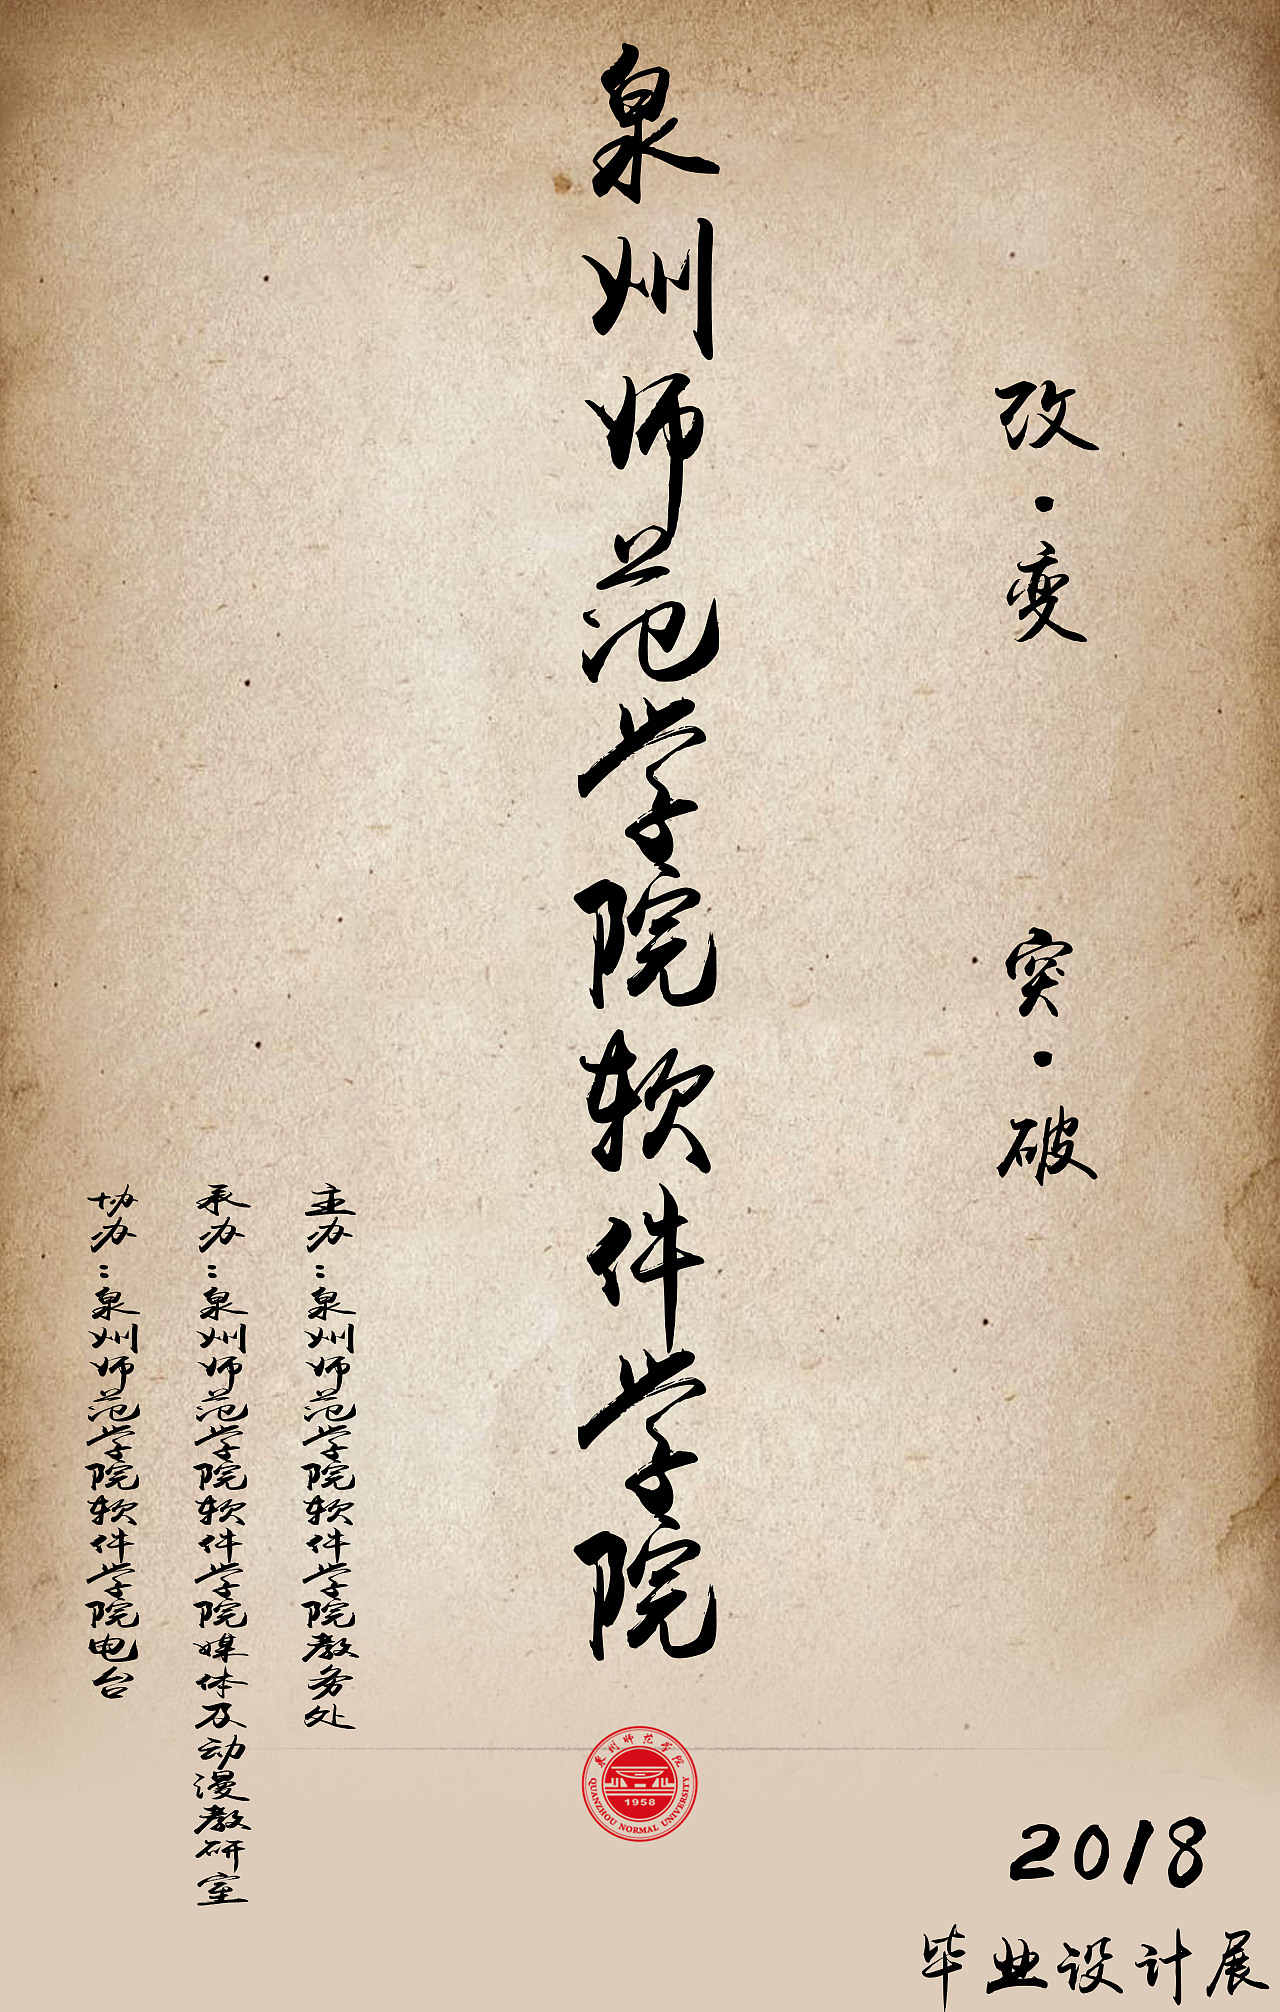 改·变
突·破
泉州师范学院软件学院
主办：泉州师范学院软件学院教务处
承办：泉州师范学院软件学院媒体及动漫教研室
协办：泉州师范学院软件学院电台
泉州师范学院
1958
QUANZHOU NORMAL UNIVERSITY
2018
毕业设计展